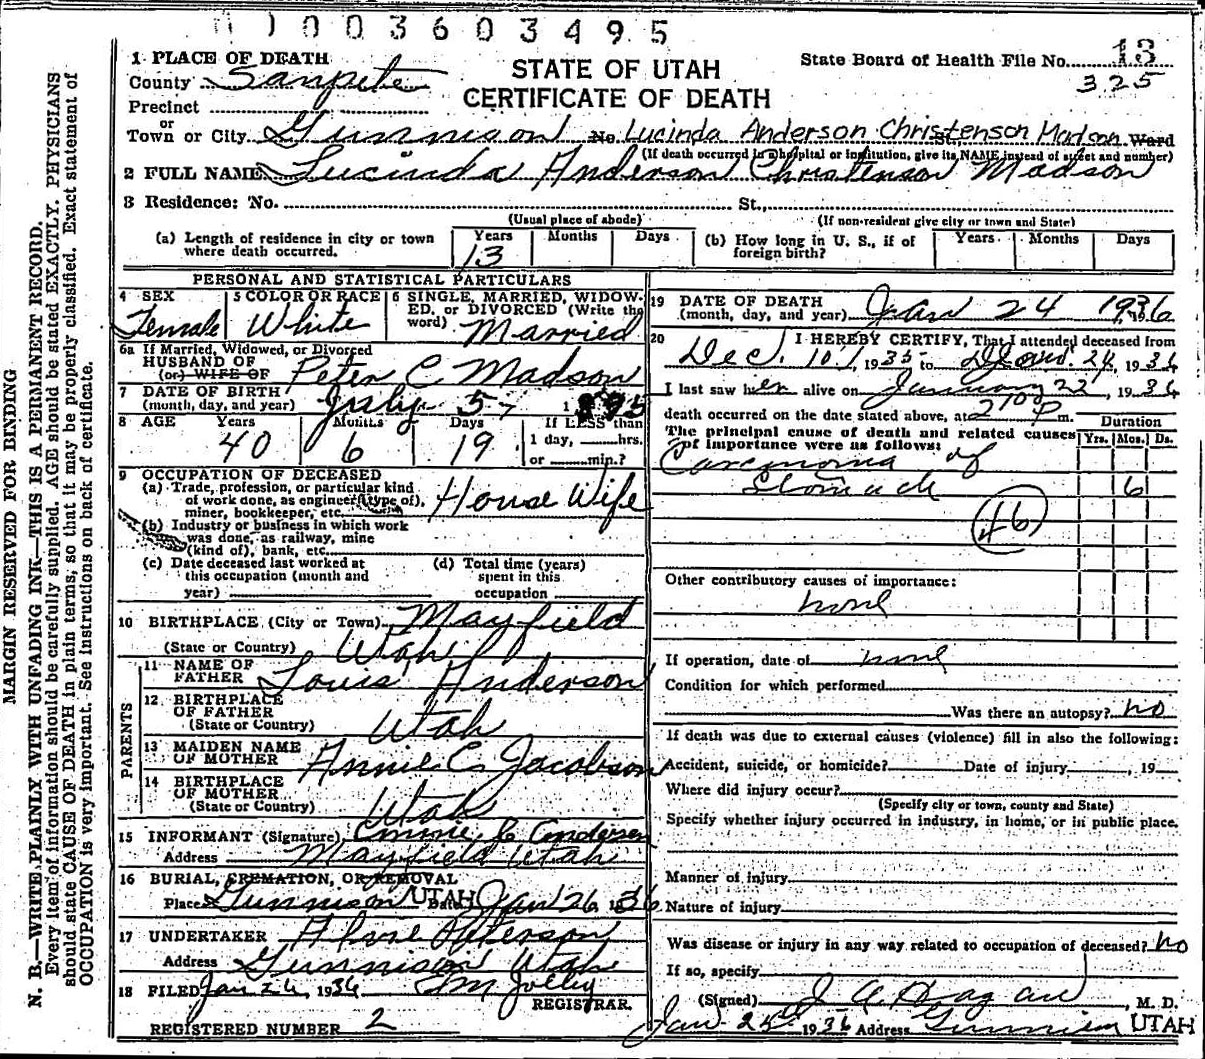 1003603495
1 PLACE OF DEATH
County Sanpete
Precinct
or
Town or City Gunnison No. Lucinda Anderson Christenson Madson St., Ward
STATE OF UTAH
CERTIFICATE OF DEATH
State Board of Health File No. 13
325
(If death occurred in a hospital or institution, give its NAME instead of street and number)
2 FULL NAME Lucinda Anderson Christenson Madson
3 Residence: No. St.,
(Usual place of abode) (If non-resident give city or town and State)
(a) Length of residence in city or town where death occurred. Years 13 Months Days
(b) How long in U. S., if of foreign birth? Years Months Days
PERSONAL AND STATISTICAL PARTICULARS
4 SEX Female
5 COLOR OR RACE White
6 SINGLE, MARRIED, WIDOWED, OR DIVORCED (Write the word) Married
6a If Married, Widowed, or Divorced
HUSBAND OF
(or) WIFE OF Peter C Madson
7 DATE OF BIRTH
(month, day, and year) July 5, 1895
8 AGE Years 40 Months 6 Days 19
If LESS than
1 day, hrs.
or min.?
9 OCCUPATION OF DECEASED
(a) Trade, profession, or particular kind
of work done, as engineer (type of),
miner, bookkeeper, etc. House Wife
(b) Industry or business in which work
was done, as railway, mine
(kind of), bank, etc.
(c) Date deceased last worked at
this occupation (month and
year)
(d) Total time (years)
spent in this
occupation
10 BIRTHPLACE (City or Town) Mayfield
(State or Country) Utah
PARENTS
11 NAME OF
FATHER Louis Anderson
12 BIRTHPLACE
OF FATHER
(State or Country) Utah
13 MAIDEN NAME
OF MOTHER Annie C Jacobson
14 BIRTHPLACE
OF MOTHER
(State or Country) Utah
15 INFORMANT (Signature)
Address Mayfield Utah
16 BURIAL, CREMATION, OR REMOVAL
Place Gunnison UTAH Date Jan 26 1936
17 UNDERTAKER
Address Gunnison Utah
18 FILED Jan 26, 1936
REGISTRAR.
REGISTERED NUMBER 2
19 DATE OF DEATH
(month, day, and year) Jan 24 1936
20 I HEREBY CERTIFY, That I attended deceased from
Dec. 10, 1935 to Jan. 24, 1936
I last saw her alive on January 22, 1936
death occurred on the date stated above, at 210 P m.
The principal cause of death and related causes
of importance were as follows:
Duration
Yrs. Mos. Ds.
Carcinoma of
Stomach 6
46
Other contributory causes of importance:
none
If operation, date of none
Condition for which performed
Was there an autopsy? no
If death was due to external causes (violence) fill in also the following:
Accident, suicide, or homicide? Date of injury , 19
Where did injury occur?
(Specify city or town, county and State)
Specify whether injury occurred in industry, in home, or in public place.
Manner of injury
Nature of injury
Was disease or injury in any way related to occupation of deceased? no
If so, specify
(Signed) , M. D.
Jan 25 1936 Address Gunnison UTAH
MARGIN RESERVED FOR BINDING
N. B.—WRITE PLAINLY WITH UNFADING INK—THIS IS A PERMANENT RECORD.
Every item of information should be carefully supplied. AGE should be stated EXACTLY. PHYSICIANS
should state CAUSE OF DEATH in plain terms, so that it may be properly classified. Exact statement of
OCCUPATION is very important. See instructions on back of certificate.